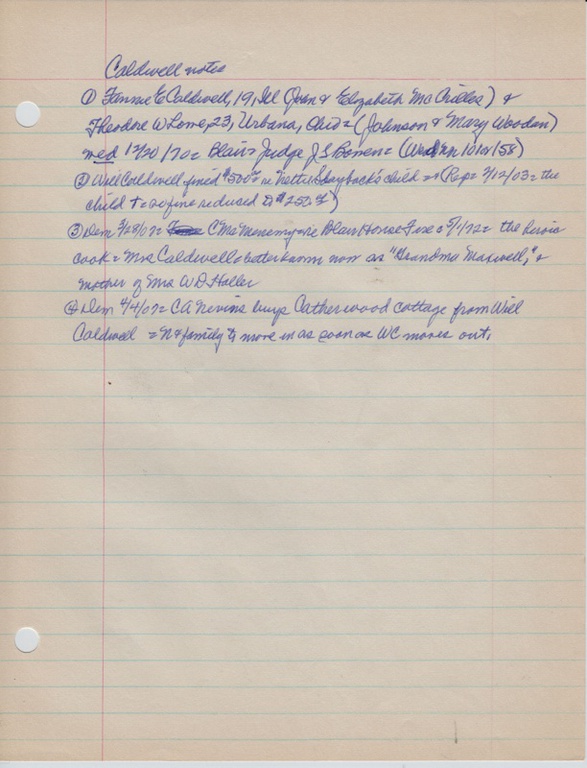 Caldwell notes
① Fannie E Caldwell, 19, Ill (Juan & Elizabeth McChilles) &
Theodore W Lowe, 23, Urbana, Ohio = (Johnson & Mary Wooden)
med 12/20/70 = Blair = Judge J S Bowen = (Wed 10/ /58)
② Will Caldwell fined $500 re Nettie Slaybock's child = (Rep= 2/12/03 = the
child + = so fine reduced to $250)
③ Dem 3/28/07 = C McMenemy re Blair House Fire @ 5/1/72 = the heroic
cook = Mrs Caldwell = better known now as "Grandma Maxwell," &
mother of Mrs W D Haller
④ Dem 4/4/07 = CA Nevins buys Catherwood cottage from Will
Caldwell = N & family to move in as soon as WC moves out.